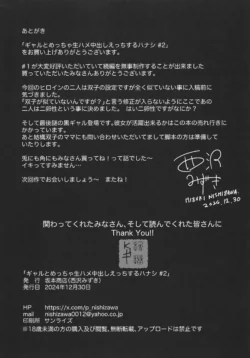 あとがき
「ギャルとめっちゃ生ハメ中出しえっちするハナシ #2」
をお買い上げありがとうございます。
#1が大変好評いただいていて続編を無事制作することが出来ました
買っていただいたみなさんありがとうございます。
今回のヒロインの二人は双子の設定ですが全く似ていない事に入稿前に
気づきました。
「双子が似ていないんですが？」と言う修正が入らないようにここであの
二人は二卵性という事にしますので、宜しくお願いします。
そして最後謎の黒ギャル登場です。彼女が活躍出来るかはこの本の売れ行きに
かかっています。
あと結構双子のママにも問い合わせいただいてまして脚本の方は準備して
いたりします。
兎にも角にもみなさん買ってね！って話でした〜
イキってすみません…
次回作でお会いしましょう〜　またね！
西沢
みずき
MIZUKI NISHIZAWA.
2024.12.30
関わってくれたみなさん、そして読んでくれた皆さんに
Thank You!!
「ギャルとめっちゃ生ハメ中出しえっちするハナシ #2」
発行　坂本商店(西沢みずき)
発行日　2024年12月30日
HP　https://x.com/p_nishizawa
mail　nishizawa0012@yahoo.co.jp
印刷所　サンライズ
※18歳未満の方の購入及び閲覧、無断転載、アップロードは禁止です